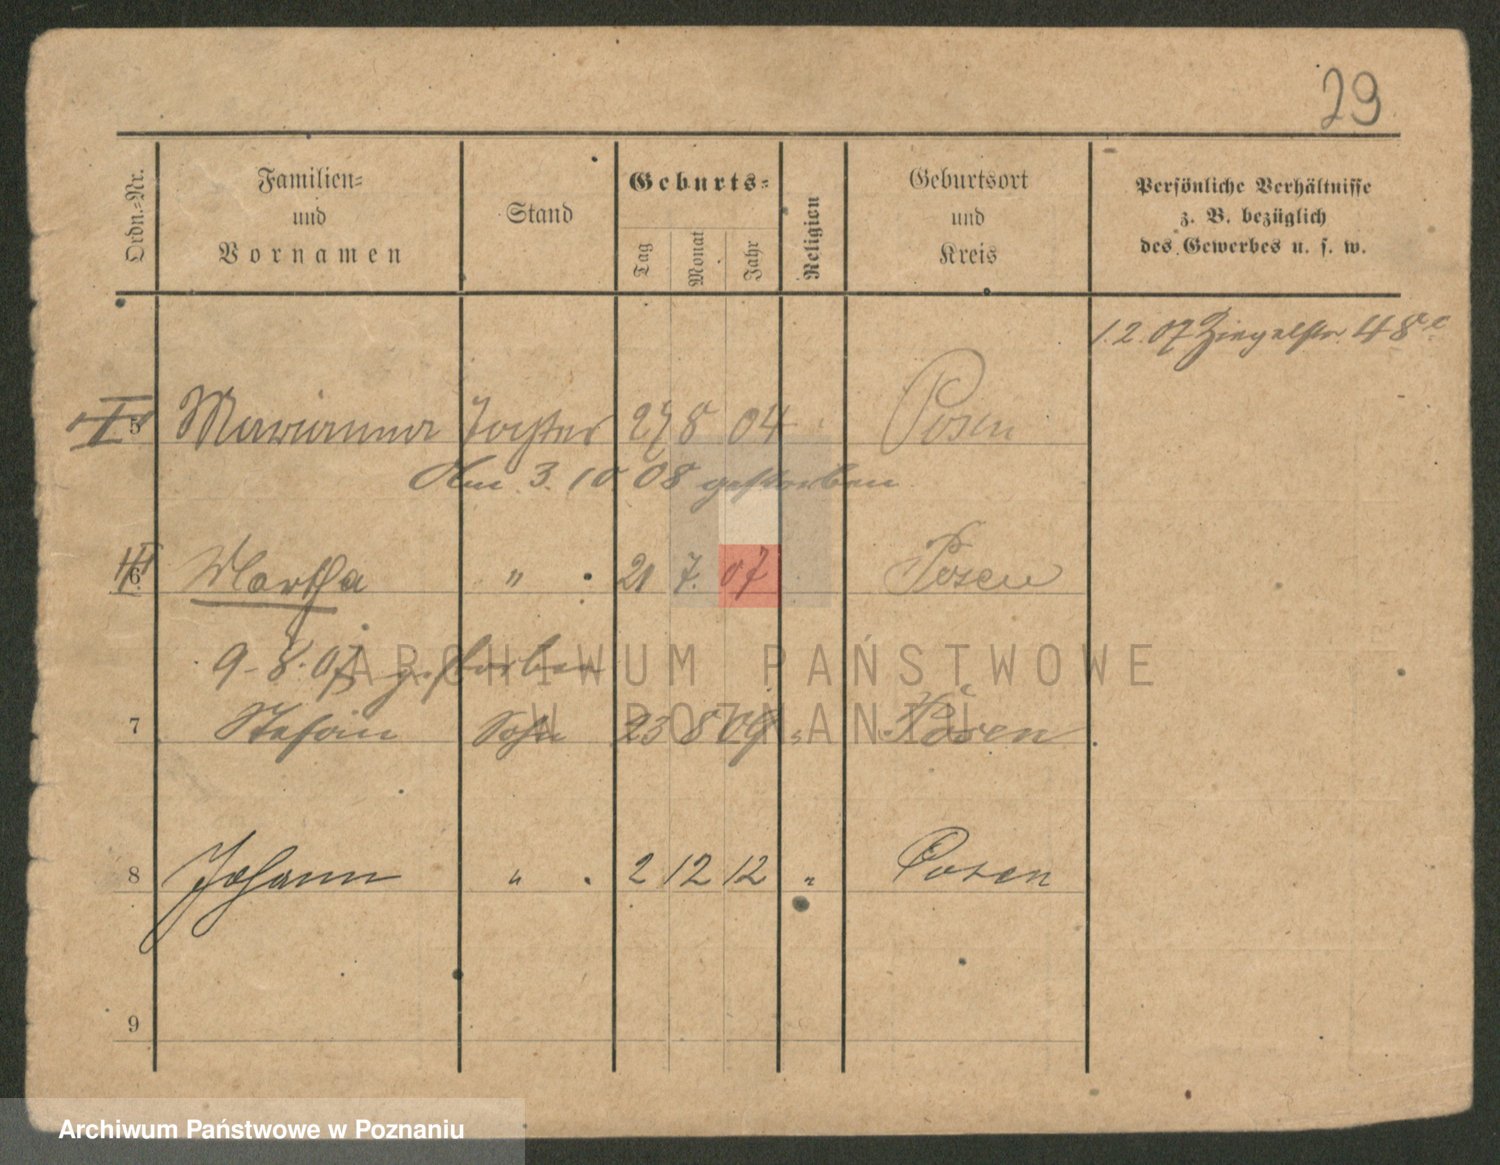 29
Ordn.-Nr.
Familien-
und
Vornamen
Stand
Geburts-
Tag
Monat
Jahr
Religion
Geburtsort
und
Kreis
Persönliche Verhältnisse
z. B. bezüglich
des Gewerbes u. s. w.
1.2.07 Ziegelstr. 48
5 Marianna Tochter 27 8 04 Posen
Am 3. 10 08 gestorben
6 Martha " 21 7. 07 Posen
9-8-07 gestorben
7 Stefan Sohn 23 8 09 " Posen
8 Johann " 2 12 12 " Posen
9
ARCHIWUM PAŃSTWOWE
W POZNANIU
Archiwum Państwowe w Poznaniu